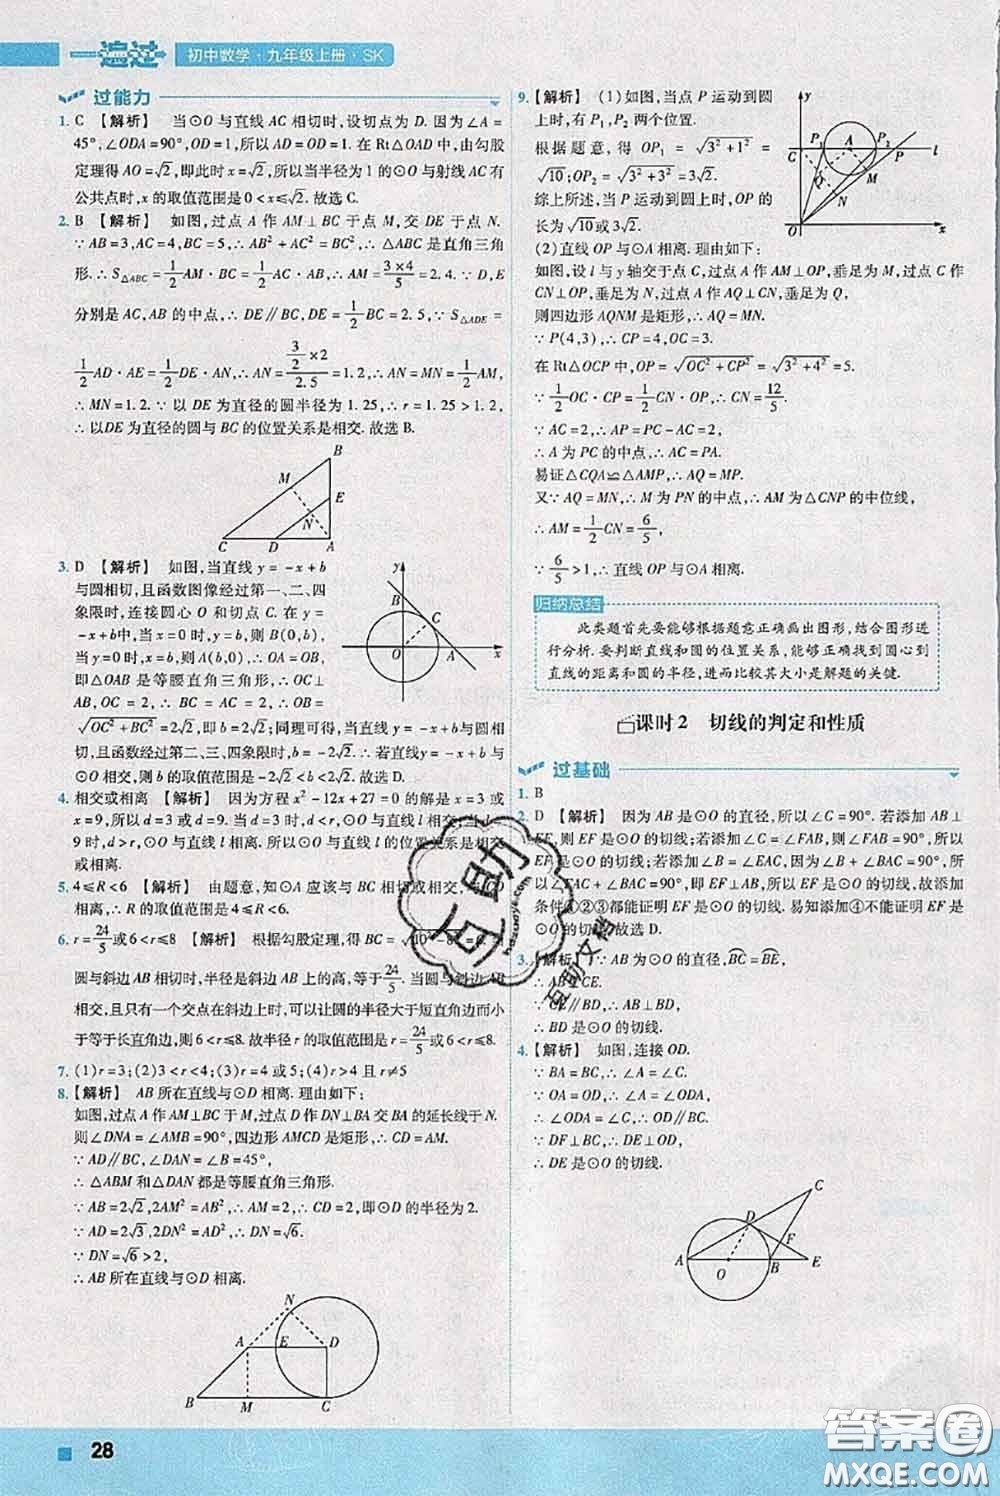 一遍过 初中数学·九年级上册·SK
过能力
1. C 【解析】 当⊙O与直线AC相切时,设切点为D.因为∠A=
45°,∠ODA=90°,OD=1,所以AD=OD=1.在Rt△OAD中,由勾股
定理得AO=√2,即此时x=√2,所以当半径为1的⊙O与射线AC有
公共点时,x的取值范围是0<x≤√2.故选C.
2. B 【解析】 如图,过点A作AM⊥BC于点M,交DE于点N.
∵AB=3,AC=4,BC=5,∴AB²+AC²=BC²,∴△ABC是直角三角
形.∴S△ABC=1/2AM·BC=1/2AB·AC,∴AM=(3×4)/5=2.4.∵D,E
分别是AC,AB的中点,∴DE∥BC,DE=1/2BC=2.5,∴S△ADE=
1/2AD·AE=1/2DE·AN,∴AN=(3/2×2)/2.5=1.2,∴MN=1/2AM,
∴MN=1.2.∵以DE为直径的圆半径为1.25,∴r=1.25>1.2,
∴以DE为直径的圆与BC的位置关系是相交.故选B.
B
M
E
N
C D A
3. D 【解析】 如图,当直线y=-x+b
与圆相切,且函数图像经过第一、二、四
象限时,连接圆心O和切点C.在y=
-x+b中,当x=0时,y=b,则B(0,b),
当y=0时,x=b,则A(b,0),∴OA=OB,
即△OAB是等腰直角三角形,∴OC=
BC,OC=2,∴BC=OC=2,∴OB=
√(OC²+BC²)=2√2,即b=2√2.同理可得,当直线y=-x+b与圆相
切,且函数经过第二、三、四象限时,b=-2√2.若直线y=-x+b与
⊙O相交,则b的取值范围是-2√2<b<2√2.故选D.
y
B
C
O A x
4. 相交或相离 【解析】 因为方程x²-12x+27=0的解是x=3或
x=9,所以d=3或d=9.当d=3时,⊙O与直线l相交;当d=
9时,⊙O与直线l相离.所以⊙O与直线l的位置关系是相交
或相离.
5. 4≤R<6 【解析】 由题意,知⊙A应该与BC相切或相交,与BD
相离,∴R的取值范围是4≤R<6.
6. r=24/5或6<r≤8 【解析】 根据勾股定理,得BC=√(10²-8²)=6.
圆与斜边AB相切时,半径是斜边AB上的高,等于24/5.当圆与斜边AB
相交,且只有一个交点在斜边上时,可以让圆的半径大于短直角边而小
于等于长直角边,则6<r≤8.故半径r的取值范围是r=24/5或6<r≤8.
7. (1)r=3;(2)3<r<4;(3)r=4或r=5;(4)r>4且r≠5
8. 【解析】 AB所在直线与⊙D相离.理由如下:
如图,过点A作AM⊥BC于M,过点D作DN⊥BA交BA的延长线于N.
则∠DNA=∠AMB=90°,四边形AMCD是矩形,∴CD=AM.
∵AD∥BC,∴∠DAN=∠B=45°,
∴△ABM和△DAN都是等腰直角三角形.
∵AB=2√2,2AM²=AB²,∴AM=2,∴CD=2,即⊙D的半径为2.
∵AD=2√3,2DN²=AD²,∴DN=√6.
∵DN=√6>2,
∴AB所在直线与⊙D相离.
N
A E D
B M C
9. 【解析】 (1)如图,当点P运动到圆
上时,有P₁,P₂两个位置.
根据题意,得OP₁=√(3²+1²)=
√10;OP₂=√(3²+3²)=3√2.
综上所述,当点P运动到圆上时,OP的
长为√10或3√2.
y
P₁ A P₂
C P l
Q M
N
O x
(2)直线OP与⊙A相离.理由如下:
如图,设l与y轴交于点C,过点A作AM⊥OP,垂足为M,过点C作
CN⊥OP,垂足为N,过点A作AQ⊥CN,垂足为Q,
则四边形AQNM是矩形,∴AQ=MN.
∵P(4,3),∴CP=4,OC=3.
在Rt△OCP中,OP=√(OC²+CP²)=√(3²+4²)=5.
∵1/2OC·CP=1/2CN·OP,∴CN=12/5.
∵AC=2,∴AP=PC-AC=2,
∴A为PC的中点,∴AC=PA.
易证△CQA≌△AMP,∴AQ=MP.
又∵AQ=MN,∴M为PN的中点,∴AM为△CNP的中位线,
∴AM=1/2CN=6/5,
∵6/5>1,∴直线OP与⊙A相离.
归纳总结
此类题首先要能够根据题意正确画出图形,结合图形进
行分析.要判断直线和圆的位置关系,能够正确找出圆心到
直线的距离和圆的半径,进而比较其大小是解题的关键.
课时2 切线的判定和性质
过基础
1. B
2. D 【解析】 因为AB是⊙O的直径,所以∠C=90°.若添加AB⊥
EF,则EF是⊙O的切线;若添加∠C=∠FAB,则∠FAB=90°,所以
EF是⊙O的切线;若添加∠B=∠EAC,因为∠B+∠BAC=90°,所以
∠EAC+∠BAC=90°,即∠EAB=90°,则EF是⊙O的切线,故添加
条件①②③都能证明EF是⊙O的切线.易知添加④不能证明EF是
⊙O的切线.故选D.
3. 【解析】 ∵AB为⊙O的直径,BC=BE,
∴AB⊥CE.
∵CE∥BD,∴AB⊥BD,
∴BD是⊙O的切线.
4. 【解析】 如图,连接OD.
∵BA=BC,∴∠A=∠C.
∵OA=OD,∴∠A=∠ODA,
∴∠ODA=∠C,∴OD∥BC.
∵DF⊥BC,∴DE⊥OD,
∴DE是⊙O的切线.
C
D
F
A O B E
28
互助
互助文档
答案圈
MXQE.COM